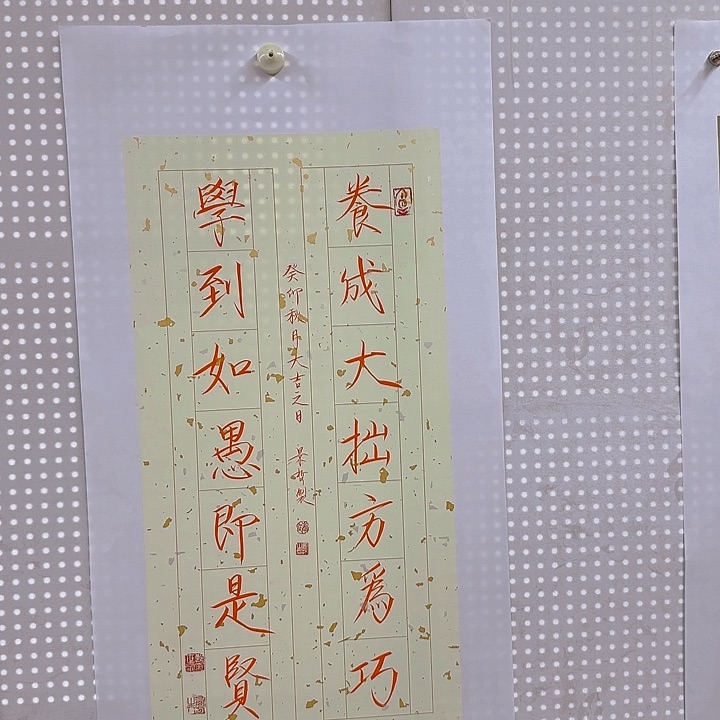 養成大拙方為巧
學到如愚即是賢
癸卯秋月大吉之日